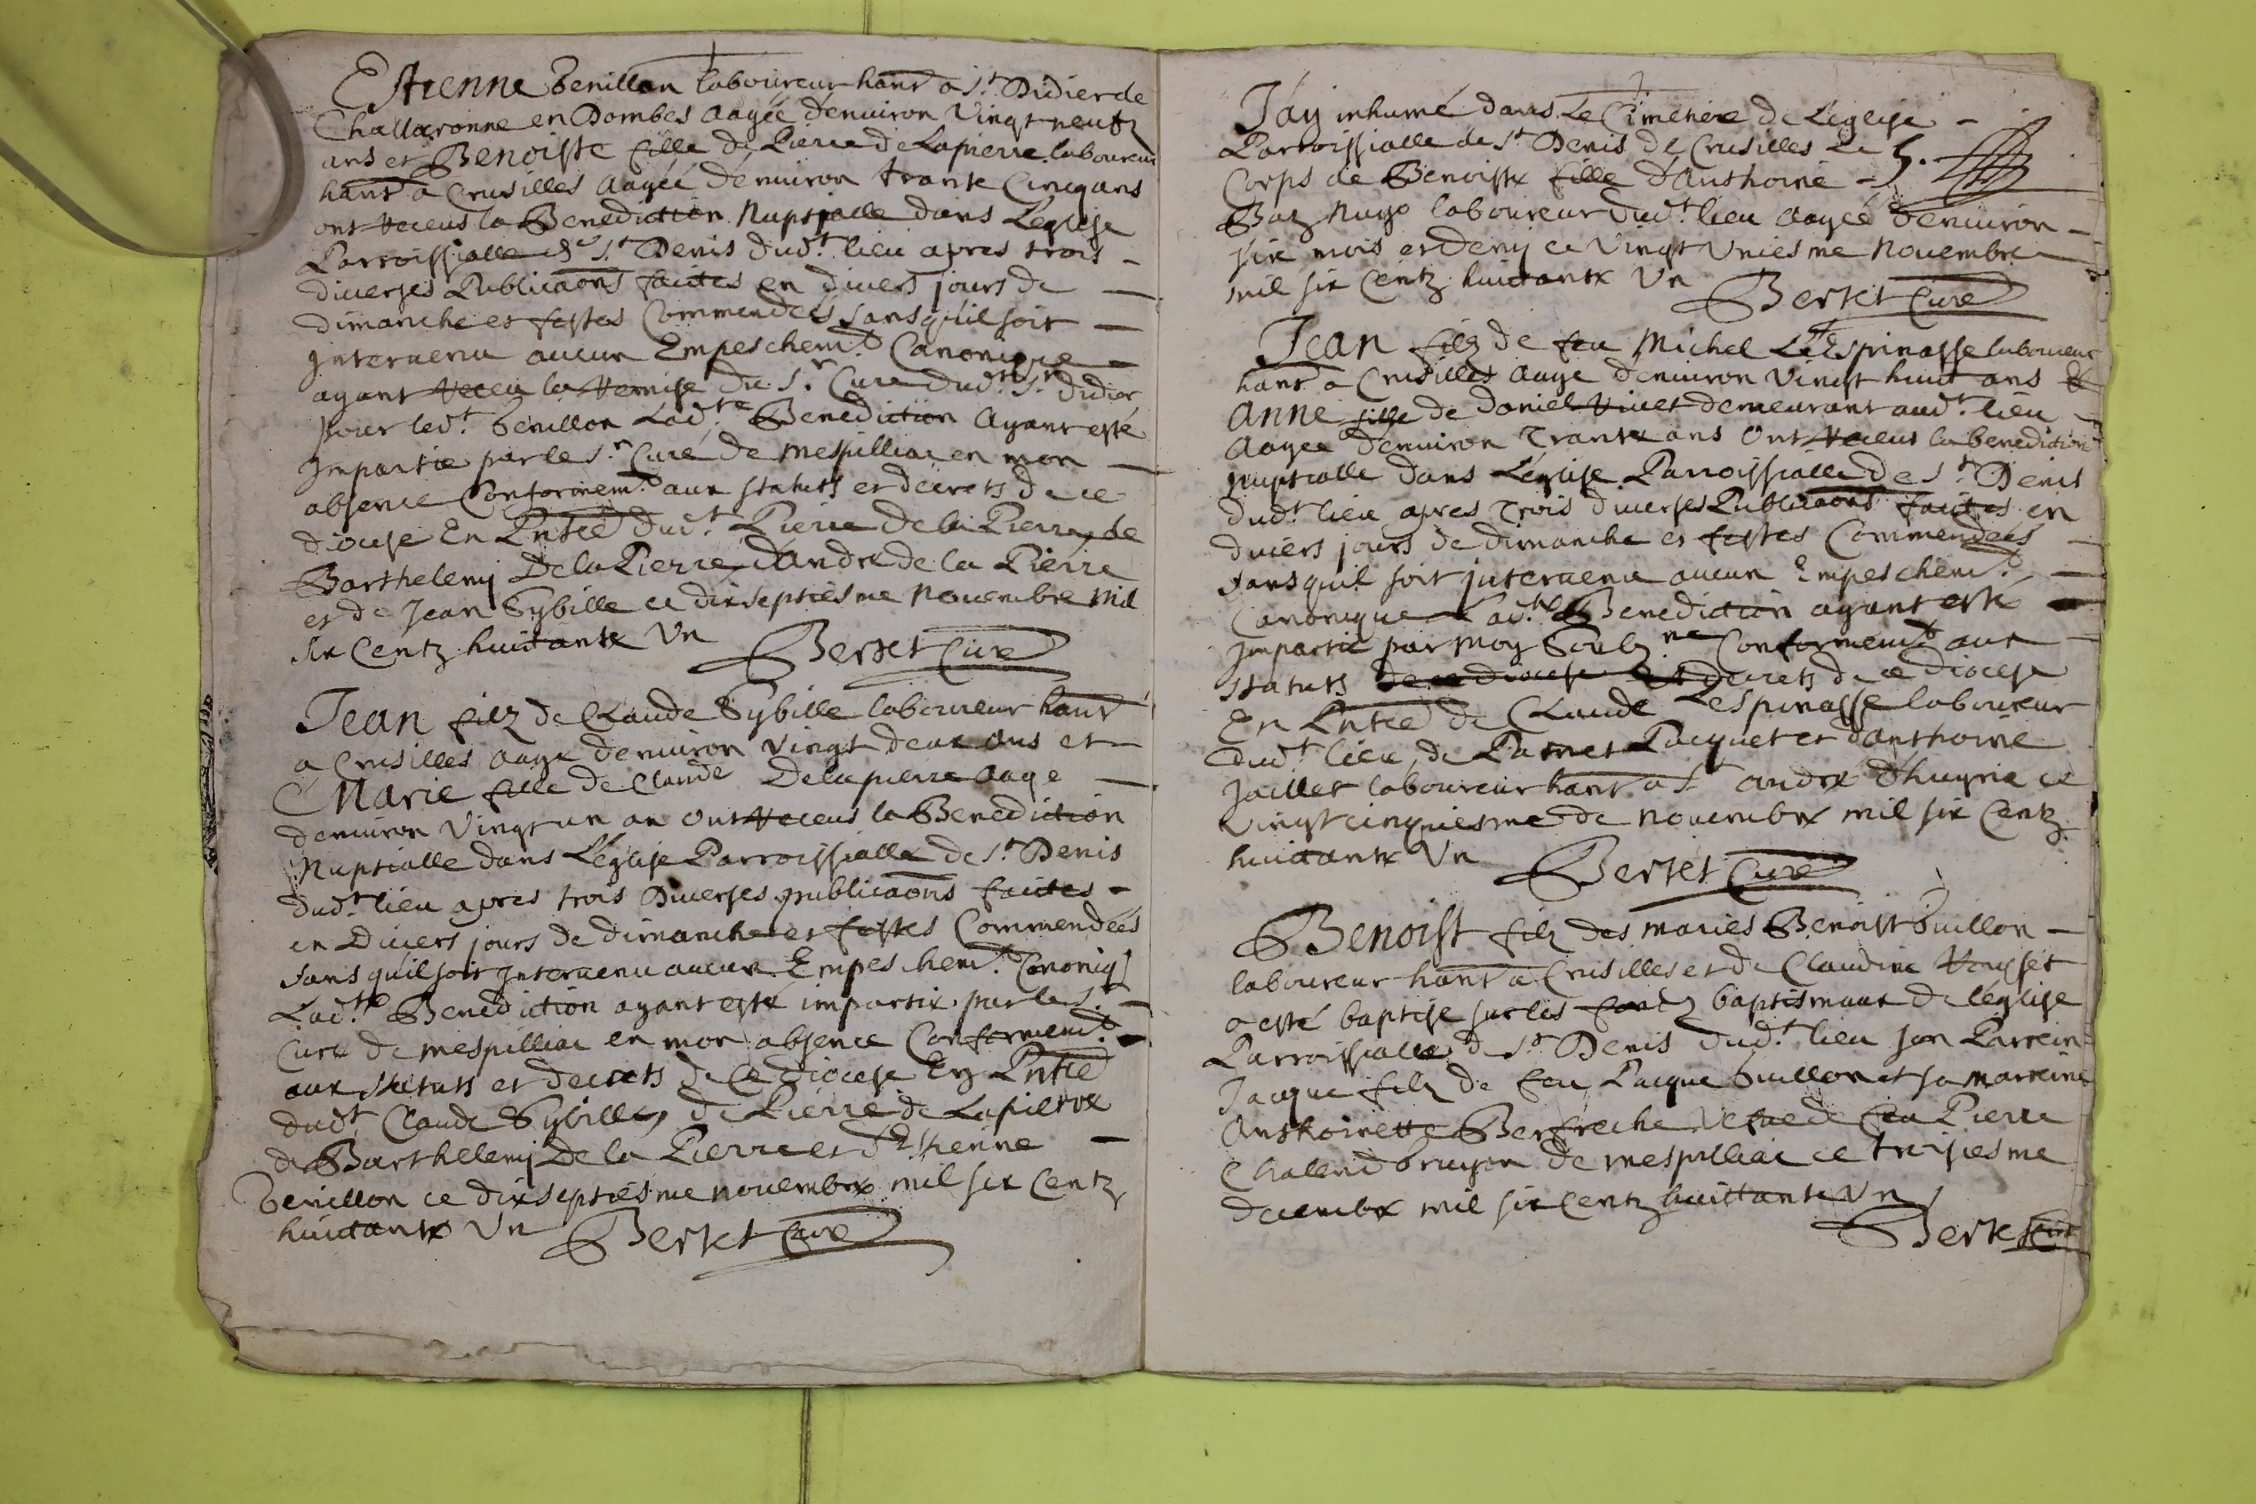 Estienne benillon laboureur hant a St Didier de
Challaronne en Dombes aagée denuiron Vingt neufz
ans et Benoiste fille de Pierre de Lapierre laboureur
hant a Crusilles aagée denuiron trante Cinq ans
ont receus la Benediction Nuptialle dans Leglise
Parroissialle de St Denis dudt lieu apres trois -
diuerses Publicaons faites en diuers jours de -
dimanche et festes Commendées sans quil soit -
Interuenu aucun Empeschemt Canonique -
ayant receu la Remise du Sr Cure dudt St didier
pour ledt benillon Ladte Benediction Ayant esté
Impartie par le Sr Curé de mespilliac en mon -
absence Conformemt aux statuts et decrets de ce
diocese En Pntce dudt Pierre de la Pierre, de
Barthelemy De la Pierre, d'Andre de la Pierre
et de Jean Sybille ce dixseptiesme Nouembre mil
six Centz huictante Vn Berset Curé
Jean filz de Claude Sybille laboureur hant
a Crusilles aage denuiron vingt deux ans et -
Marie fille de Claude Delapierre aage -
denuiron Vingt un an ont receus la Benediction
Nuptialle dans L'église Parroissialle de St Denis
dudt lieu apres trois Diuerses publicaons faites -
en Diuers jours de dimanche et festes Commendées
sans quil soit Interuenu aucun Empeschemt Canoniq
Ladte Benediction ayant esté impartie par le Sr -
Curé de mespilliac en mon absence Conformemt -
aux statuts et decrets de Ce diocese En Pntce
dudt Claude Sybille, de Pierre de Lapierre
de Barthelemy De la Pierre et d'Estienne -
benillon ce dixseptiesme nouembre mil six Centz
huictante Vn Berset Curé
J'ay inhumé dans Le Cimetiere de Leglise -
Parroissialle de St Denis de Crusilles Le 5.
Corps de Benoiste fille d'Anthoine -
Baz laboureur dudt lieu aagée denuiron -
six mois et demy ce Vingt Vniesme Nouembre
mil six Centz huictante Vn Berset Curé
Jean filz de feu Michel L'Espinasse laboureur
hant a Crusilles aage denuiron Vingt huict ans &
Anne fille de daniel Viuet demeurant audt lieu -
Aagee denuiron Trante ans Ont receus la benediction
nuptialle dans L'église Parroissialle de St Denis
dudt lieu apres Trois diuerses Publicaons faites en
diuers jours de dimanche et festes Commendées -
sans quil soit jnteruenu aucun Empeschemt -
Canonique Ladte Benediction ayant esté
Impartie par moy Soubzne Conformemt aux -
statuts de ce diocese et decrets de ce diocese
En Pntce de Claude Lespinasse laboureur
dudt lieu, de Pacquet et d'anthoine
Jaillet laboureur hant a St André d'huyria ce
Vingt cinquiesme de nouembre mil six Centz
huictante Vn Berset Curé
Benoist filz des mariés Benoist buillon -
laboureur hant a Crusilles et de Claudine
a esté baptise sur les fondz baptismaux de léglise
Parroissialle de St Denis dudt lieu son Parrein
Jacque filz de feu Pacque buillon et sa marreine
Anthoinette vefue de feu Pierre
Chalend bruyon de mespilliac ce troisiesme
decembre mil six Centz huictante Vn
Berset Curé